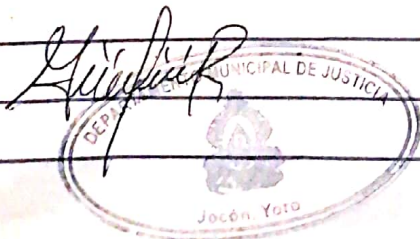 DEPARTAMENTO MUNICIPAL DE JUSTICIA
Jocón, Yoro